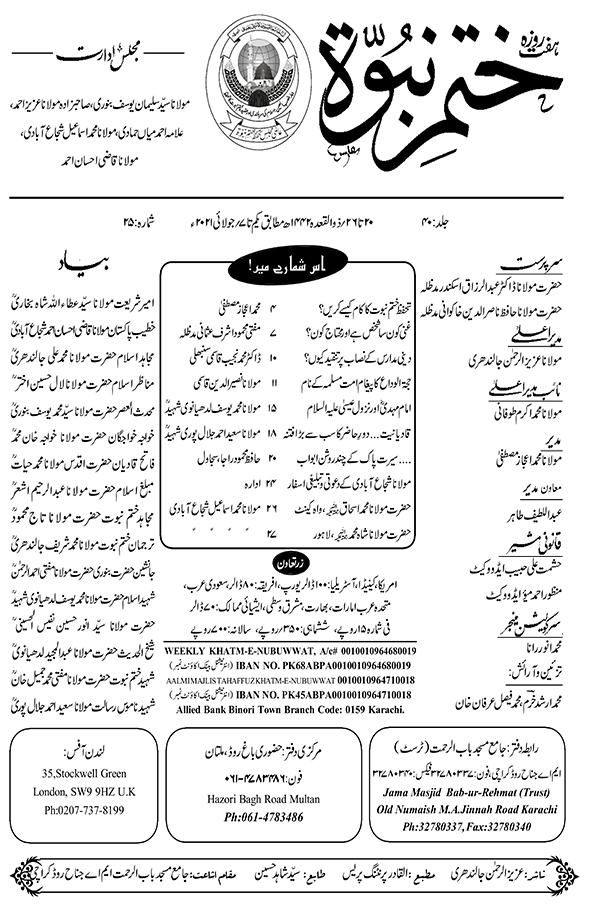 ہفت روزہ
ختم نبوّۃ
مجلس ادارت
مولانا سیّد سلیمان یوسف بنوری، صاحبزادہ مولانا عزیز احمد،
علامہ احمد میاں حمادی، مولانا محمد اسماعیل شجاع آبادی،
مولانا قاضی احسان احمد
جلد: ۴۰
۲۰ تا ۲۶/ ذوالقعدہ ۱۴۴۲ھ مطابق یکم تا ۷/ جولائی ۲۰۲۱ء
شمارہ: ۲۵
سرپرست
حضرت مولانا ڈاکٹر عبدالرزاق اسکندر مدظلہ
حضرت مولانا حافظ ناصر الدین خاکوانی مدظلہ
مدیر اعلیٰ
مولانا عزیز الرحمٰن جالندھری
نائب مدیر اعلیٰ
مولانا محمد اکرم طوفانی
مدیر
مولانا محمد اعجاز مصطفیٰ
معاون مدیر
عبداللطیف طاہر
قانونی مشیر
حشمت علی حبیب ایڈووکیٹ
منظور احمد میؤ ایڈووکیٹ
سرکولیشن منیجر
محمد انور رانا
تزئین و آرائش:
محمد ارشد خرم، محمد فیصل عرفان خان
اس شمارے میں!
تحفظ ختم نبوت کا کام کیسے کریں؟ ۴ محمد اعجاز مصطفیٰ
غنی کون سا شخص ہے اور محتاج کون؟ ۷ مفتی محمود اشرف عثمانی مدظلہ
دینی مدارس کے نصاب پر تنقید کیوں؟ ۱۰ ڈاکٹر محمد نجیب قاسمی سنبھلی
حجۃ الوداع کا پیغام امت مسلمہ کے نام ۱۱ مولانا نصیر الدین قاسمی
امام مہدیؓ اور نزول عیسیٰ علیہ السلام ۱۵ مولانا محمد یوسف لدھیانوی شہیدؒ
قادیانیت... دور حاضر کا سب سے بڑا فتنہ ۱۸ مولانا سعید احمد جلال پوری شہیدؒ
.... سیرت پاک کے چند روشن ابواب ۲۰ حافظ محمود راجا، سجاول
مولانا شجاع آبادی کے دعوتی و تبلیغی اسفار ۲۴ ادارہ
حضرت مولانا محمد اسحاقؒ، واہ کینٹ ۲۶ مولانا محمد اسماعیل شجاع آبادی
حضرت مولانا شاہ محمدؒ، لاہور ۲۷ " " " "
زرتعاون
امریکا، کینیڈا، آسٹریلیا: ۱۰۰ ڈالر یورپ، افریقہ: ۸۰ ڈالر، سعودی عرب،
متحدہ عرب امارات، بھارت، مشرق وسطیٰ، ایشیائی ممالک: ۷۰ ڈالر
فی شمارہ ۱۵ روپے، ششماہی: ۳۵۰ روپے، سالانہ: ۷۰۰ روپے
WEEKLY KHATM-E-NUBUWWAT, A/c# 0010010964680019
IBAN NO. PK68ABPA0010010964680019 (انٹرنیشنل بینک اکاؤنٹ نمبر)
AALMI MAJLIS TAHAFFUZ KHATM-E-NUBUWWAT 0010010964710018
IBAN NO. PK45ABPA0010010964710018 (انٹرنیشنل بینک اکاؤنٹ نمبر)
Allied Bank Binori Town Branch Code: 0159 Karachi.
بیاد
امیر شریعت مولانا سیّد عطاء اللہ شاہ بخاریؒ
خطیب پاکستان مولانا قاضی احسان احمد شجاع آبادیؒ
مجاہد اسلام حضرت مولانا محمد علی جالندھریؒ
مناظر اسلام حضرت مولانا لال حسین اخترؒ
محدث العصر حضرت مولانا سیّد محمد یوسف بنوریؒ
خواجہ خواجگان حضرت مولانا خواجہ خان محمدؒ
فاتح قادیان حضرت اقدس مولانا محمد حیاتؒ
مبلغ اسلام حضرت مولانا عبدالرحیم اشعرؒ
مجاہد ختم نبوت حضرت مولانا تاج محمودؒ
ترجمان ختم نبوت حضرت مولانا محمد شریف جالندھریؒ
جانشین حضرت بنوری حضرت مولانا مفتی احمد الرحمٰنؒ
شہید اسلام حضرت مولانا محمد یوسف لدھیانوی شہیدؒ
حضرت مولانا سیّد انور حسین نفیس الحسینیؒ
شیخ الحدیث حضرت مولانا عبدالمجید لدھیانویؒ
شہید ختم نبوت حضرت مولانا مفتی محمد جمیل خانؒ
شہید ناموس رسالت مولانا سعید احمد جلال پوریؒ
رابطہ دفتر: جامع مسجد باب الرحمت (ٹرسٹ)
ایم اے جناح روڈ کراچی، فون: ۳۲۷۸۰۳۳۷ فیکس: ۳۲۷۸۰۳۴۰
Jama Masjid Bab-ur-Rehmat (Trust)
Old Numaish M.A.Jinnah Road Karachi
Ph:32780337, Fax:32780340
مرکزی دفتر: حضوری باغ روڈ، ملتان
فون: ۰۶۱-۴۷۸۳۴۸۶
Hazori Bagh Road Multan
Ph:061-4783486
لندن آفس:
35,Stockwell Green
London, SW9 9HZ U.K
Ph:0207-737-8199
ناشر: عزیز الرحمٰن جالندھری مطبع: القادر پرنٹنگ پریس طابع: سیّد شاہد حسین مقام اشاعت: جامع مسجد باب الرحمت ایم اے جناح روڈ کراچی